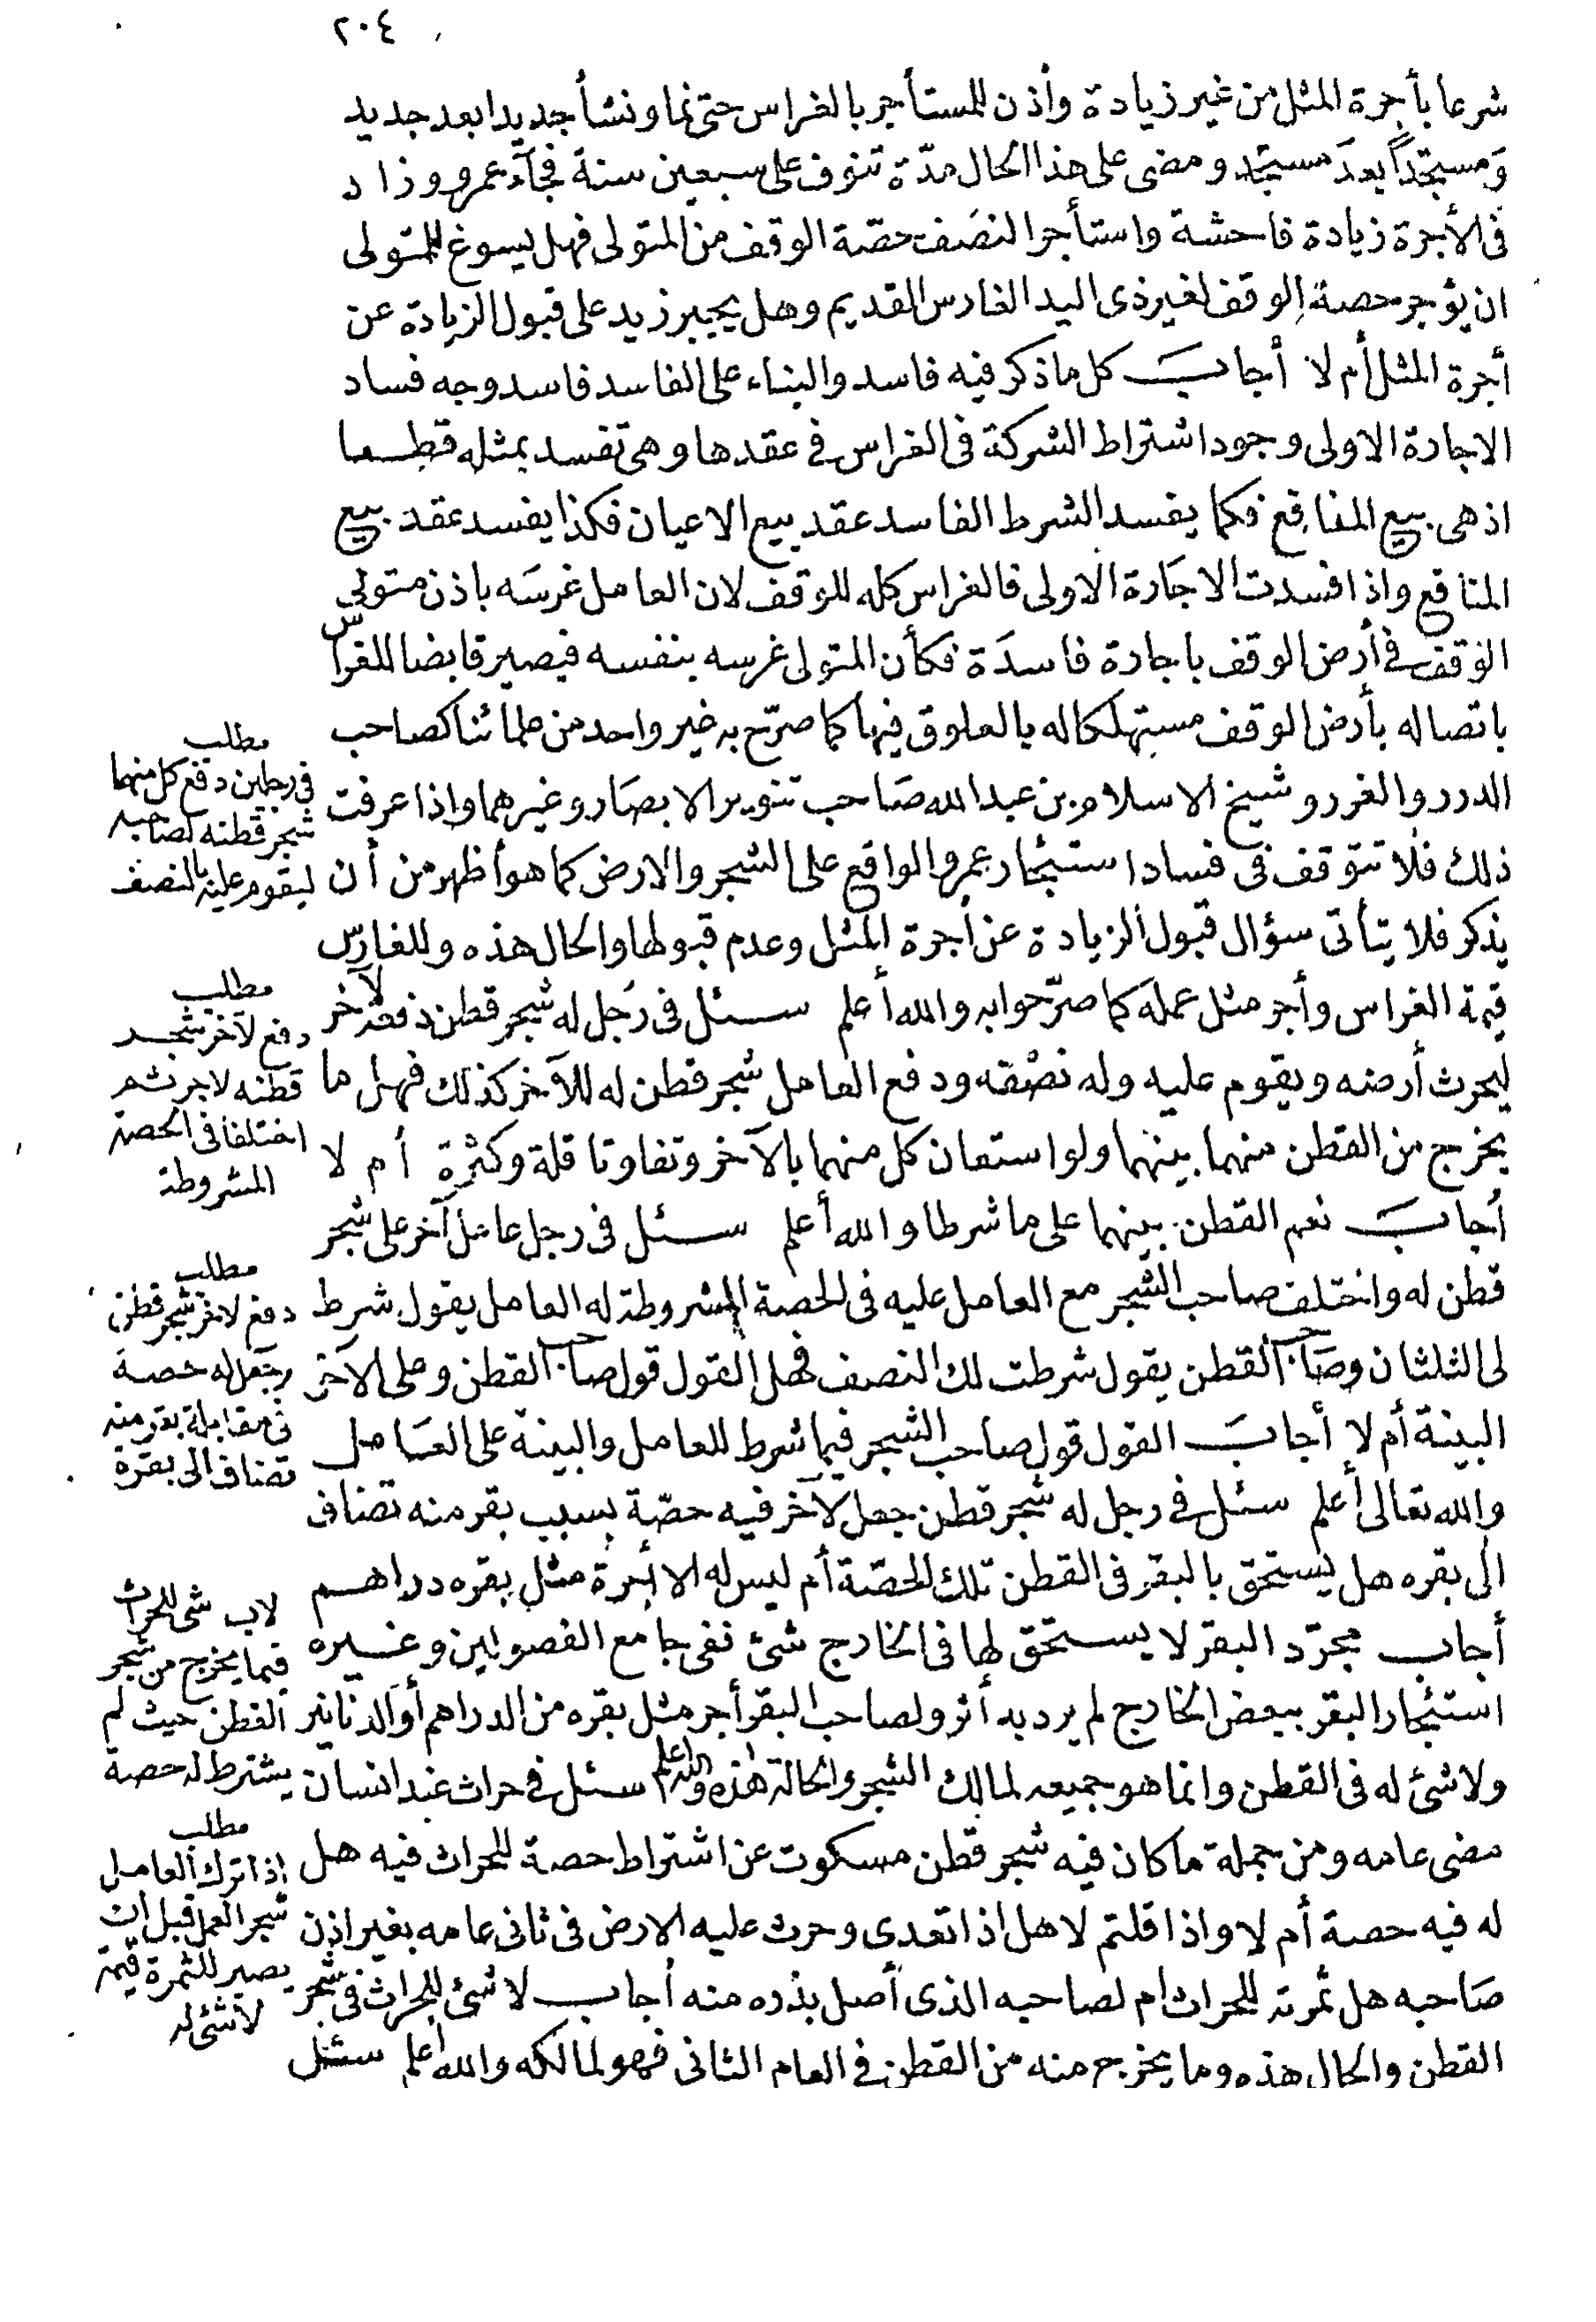 ٢٠٤
شرعا بأجرة المثل من غير زيادة وأذن للمستأجر بالغراس حتى نما ونشأ جديدا بعد جديد
ومستجدًا بعد مستجد ومضى على هذا الحال مدّة تنوف على سبعين سنة فجآء عمرو وزاد
فى الأجرة زيادة فاحشة واستأجر النصف حصّة الوقف من المتولى فهل يسوغ للمتولى
ان يؤجر حصة الوقف لغير ذى اليد الغارس القديم وهل يجبر زيد على قبول الزيادة عن
أجرة المثل أم لا أجاب كل ما ذكر فيه فاسد والبناء على الفاسد فاسد وجه فساد
الاجارة الاولى وجود اشتراط الشركة فى الغراس فى عقدها وهى تفسد بمثله قطعا
اذ هى بيع المنافع فكما يفسد الشرط الفاسد عقد بيع الاعيان فكذا يفسد عقد بيع
المنافع واذا فسدت الاجارة الاولى فالغراس كله للوقف لان العامل غرسه باذن متولى
الوقف فى أرض الوقف باجارة فاسدة فكأن المتولى غرسه بنفسه فيصير قابضا للغراس
باتصاله بأرض الوقف مستهلكا له بالعلوق فيها كما صرّح به غير واحد من علمائنا كصاحب
الدرر والغرر وشيخ الاسلام بن عبد الله صاحب تنوير الابصار وغيرهما واذا عرفت
ذلك فلا تتوقف فى فساد استئجار عمرو الواقع على الشجر والارض كما هو أظهر من أن
يذكر فلا يتأتى سؤال قبول الزيادة عن أجرة المثل وعدم قبولها والحال هذه وللغارس
قيمة الغراس وأجر مثل عمله كما صرّحوا به والله أعلم سئل فى رجل له شجر قطن دفعه لآخر
ليحرث أرضه ويقوم عليه وله نصفه ودفع العامل شجر قطن له للآخر كذلك فهل ما
يخرج من القطن منهما بينهما ولو استعان كل منهما بالآخر وتفاوتا قلة وكثرة أم لا
أجاب نعم القطن بينهما على ما شرطا والله أعلم سئل فى رجل عامل آخر على شجر
قطن له واختلف صاحب الشجر مع العامل عليه فى الحصة المشروطة له العامل يقول شرط
لى الثلثان وصاحب القطن يقول شرطت لك النصف فهل القول قول صاحب القطن وعلى الآخر
البينة أم لا أجاب القول قول صاحب الشجر فيما شرط للعامل والبينة على العامل
والله تعالى أعلم سئل فى رجل له شجر قطن جعل لآخر فيه حصّة بسبب بقر منه تضاف
الى بقره هل يستحق بالبقر فى القطن تلك الحصّة أم ليس له الا أجرة مثل بقره دراهم
أجاب مجرّد البقر لا يستحق لها فى الخارج شئ نفى جامع الفصولين وغيره
استئجار البقر ببعض الخارج لم يرد به أثر ولصاحب البقر أجر مثل بقره من الدراهم أو الدنانير
ولا شئ له فى القطن وانما هو جميعه لمالك الشجر والحالة هذه والله اعلم سئل فى حراث عند انسان
مضى عامه ومن جملة ما كان فيه شجر قطن مسكوت عن اشتراط حصة للحراث فيه هل
له فيه حصة أم لا واذا قلتم لا هل اذا تعدى وحرث عليه الارض فى ثانى عامه بغير اذن
صاحبه هل ثمرته للحراث ام لصاحبه الذى أصل بذره منه أجاب لا شئ للحراث فى شجر
القطن والحال هذه وما يخرج منه من القطن فى العام الثانى فهو لمالكه والله اعلم سئل
مطلب
فى رجلين دفع كل منهما
شجر قطنه لصاحبه
ليقوم عليه بالنصف
مطلب
دفع لآخر شجر
قطنه لاجرث ثم
اختلفا فى الحصة
المشروطة
مطلب
دفع لاخر شجر قطن
وجعل له حصة
فى مقابلة بقر منه
تضاف الى بقره
لاب شى للحراث
فيما يخرج من شجر
القطن حيث لم
يشترط له حصة
مطلب
اذا ترك العامل
شجر العمل قبل ان
يصير للثمرة قيمة
لا شئ له